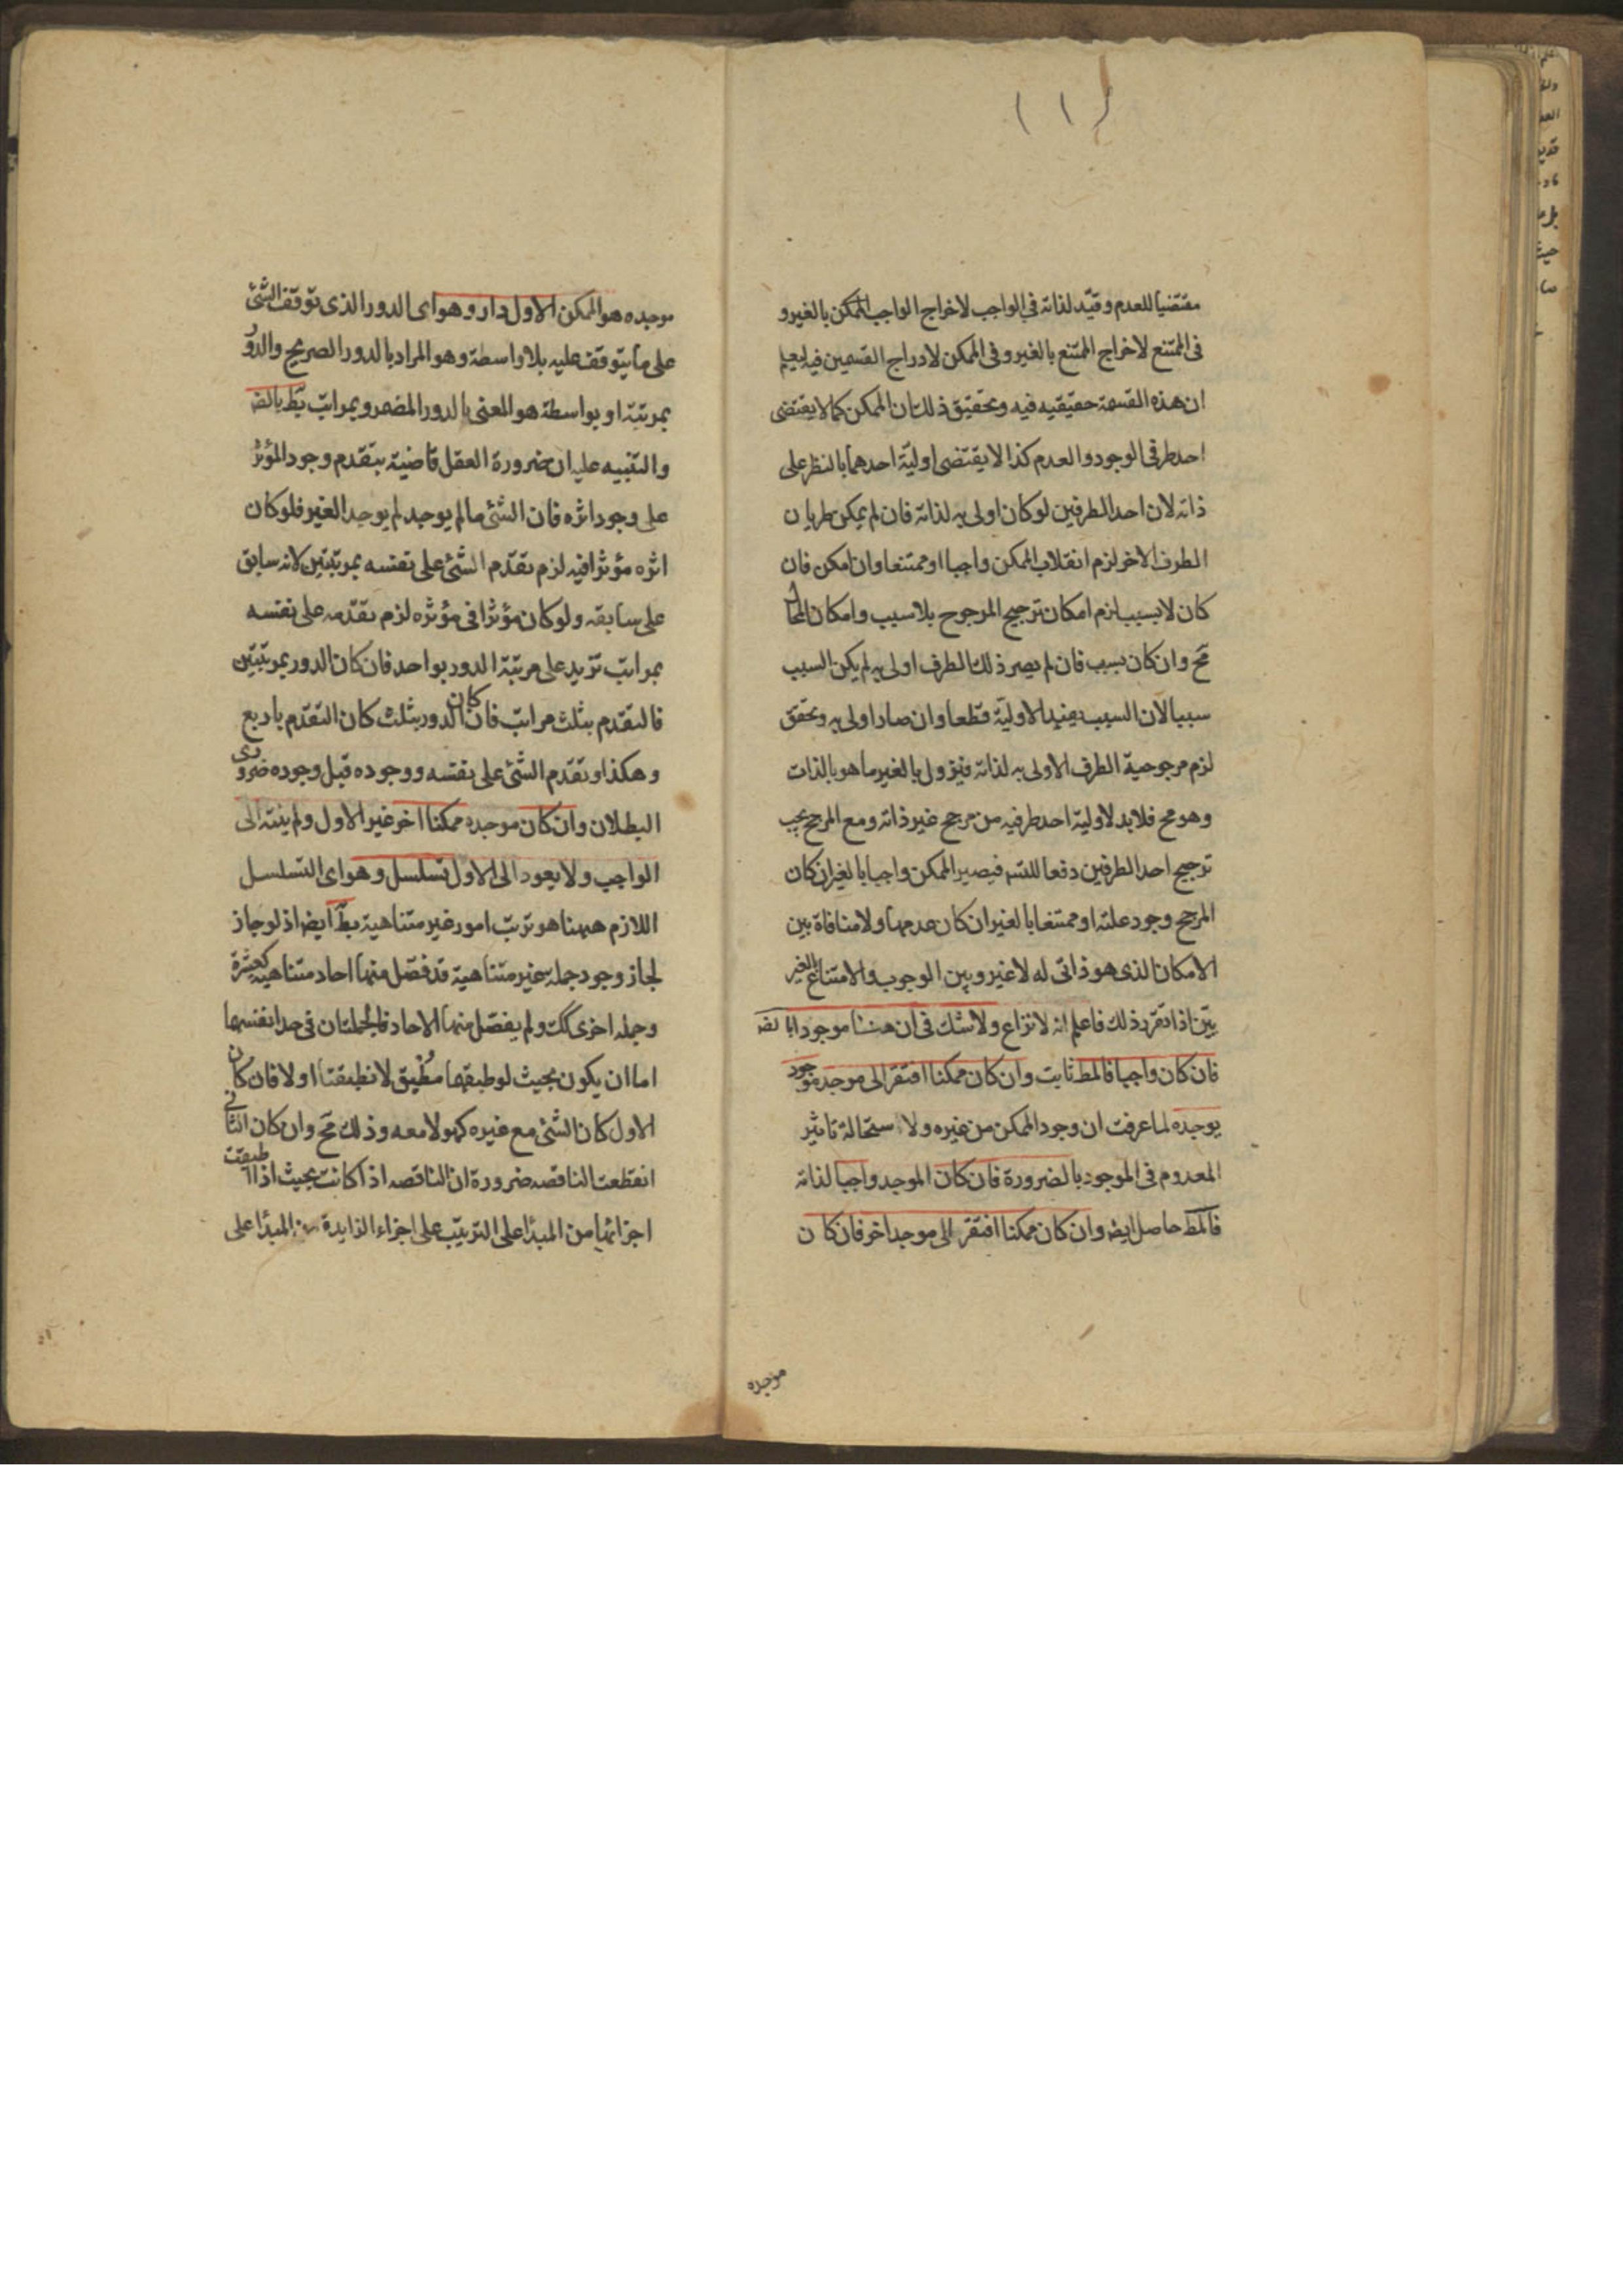 (١)
مقتضيا للعدم وقيّد لذاته في الواجب لاخراج الواجب الممكن بالغير و
في الممتنع لاخراج الممتنع بالغير وفى الممكن لادراج القسمين فيه ليعلم
ان هذه القسمة حقيقيه فيه وتحقيق ذلك ان الممكن كما لا يقتضى
احد طرفى الوجود والعدم كذا لا يقتضى اوليّة احدهما بالنظر على
ذاته لان احد الطرفين لوكان اولى به لذاته فان لم يمكن طريان
الطرف الاخر لزم انقلاب الممكن واجبا او ممتنعا وان امكن فان
كان لا بسبب لزم امكان ترجيح المرجوح بلا سبب وامكان المحال
مح وان كان بسبب فان لم يصر ذلك الطرف اولى به لم يكن السبب
سببا لان السبب يفيد الاوليّة قطعا وان صار اولى به وتحقق
لزم مرجوحية الطرف الاولى به لذاته فيزول بالغير ما هو بالذات
وهو مح فلابد لاولية احد طرفيه من مرجح غير ذاته ومع المرجح يجب
ترجيح احد الطرفين دفعا للتسـ فيصير الممكن واجبا بالغير ان كان
المرجح وجود علته او ممتنعا بالغير ان كان عدمها ولا منافاة بين
الامكان الذى هو ذاتى له لا غير وبين الوجوب والامتناع بالغير
بيّن اذا تقرر ذلك فاعلم انه لا نزاع ولا شك فى ان هنا موجودا بالضـ
فان كان واجبا فالمط ثابت وان كان ممكنا افتقر الى موجد موجود
يوجده لما عرفت ان وجود الممكن من غيره ولا ستحالة تاثير
المعدوم فى الموجود بالضرورة فان كان الموجد واجبا لذاته
فالمط حاصل ايضـ وان كان ممكنا افتقر الى موجد اخر فان كان
موجده
موجده هو الممكن الاول دار وهو اى الدور الذى توقف الشئ
على ما يتوقف عليه بلا واسطة وهو المراد بالدور الصريح والدور
بمرتبة او بواسطة هو المعنى بالدور المضمر وبمراتب بط بالضـ
والتنبيه عليه ان ضرورة العقل قاضية بتقدم وجود المؤثر
على وجود اثره فان الشئ ما لم يوجد لم يوجد الغير فلو كان
اثره مؤثرا فيه لزم تقدّم الشئ على نفسه بمرتبتين لانه سابق
على سابقه ولو كان مؤثرا فى مؤثره لزم تقدّمه على نفسه
بمراتب تزيد على مرتبة الدور بواحد فان كان الدور بمرتبتين
فالتقدم بثلث مراتب فان كان الدور بثلث كان التقدّم باربع
وهكذا وتقدّم الشئ على نفسه ووجوده قبل وجوده ضرورى
البطلان وان كان موجده ممكنا اخر غير الاول ولم ينته الى
الواجب ولا يعود الى الاول تسلسل وهو اى التسلسل
اللازم ههنا هو ترتب امور غير متناهية بط ايضـ اذ لو جاز
لجاز وجود جملة غير متناهية قد فصّل منها احاد متناهيه كعشرة
وجملة اخرى كك ولم يفصّل منها الاحاد فالجملتان فى حد انفسهما
اما ان يكون بحيث لو طبقهما مطبق لانطبقتا او لا فان كان
الاول كان الشئ مع غيره كهو لا معه وذلك مح وان كان الثانى
انقطعت الناقصه ضرورة ان الناقصه اذا كانت بحيث اذا طبقت
اجزائها من المبدأ على الترتيب على اجزاء الزايدة من المبدأ على